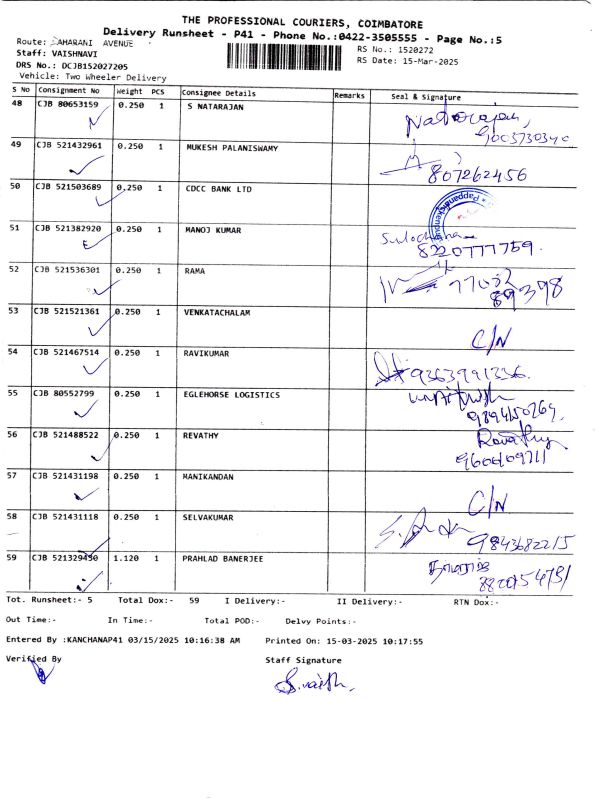 THE PROFESSIONAL COURIERS, COIMBATORE
Delivery Runsheet - P41 - Phone No.:0422-3505555 - Page No.:5
Route: SAHARANI AVENUE
Staff: VAISHNAVI
RS No.: 1520272
DRS No.: DCJB152027205
RS Date: 15-Mar-2025
Vehicle: Two Wheeler Delivery
S No Consignment No Weight PCS Consignee Details Remarks Seal & Signature
48 CJB 80653159 0.250 1 S NATARAJAN Natarajan,
9003730340
49 CJB 521432961 0.250 1 MUKESH PALANISWAMY
807262456
50 CJB 521503689 0.250 1 CDCC BANK LTD
51 CJB 521382920 0.250 1 MANOJ KUMAR Sulochana
8220777759.
52 CJB 521536301 0.250 1 RAMA 77082
89398
53 CJB 521521361 0.250 1 VENKATACHALAM
C/N
54 CJB 521467514 0.250 1 RAVIKUMAR
9363991336.
55 CJB 80552799 0.250 1 EGLEHORSE LOGISTICS
9894150264.
56 CJB 521488522 0.250 1 REVATHY Revathy
9600409711
57 CJB 521431198 0.250 1 MANIKANDAN
C/N
58 CJB 521431118 0.250 1 SELVAKUMAR
9843682215
59 CJB 521329450 1.120 1 PRAHLAD BANERJEE
Tot. Runsheet:- 5 Total Dox:- 59 I Delivery:- II Delivery:- RTN Dox:-
Out Time:- In Time:- Total POD:- Delvy Points:-
Entered By :KANCHANAP41 03/15/2025 10:16:38 AM Printed On: 15-03-2025 10:17:55
Verified By Staff Signature